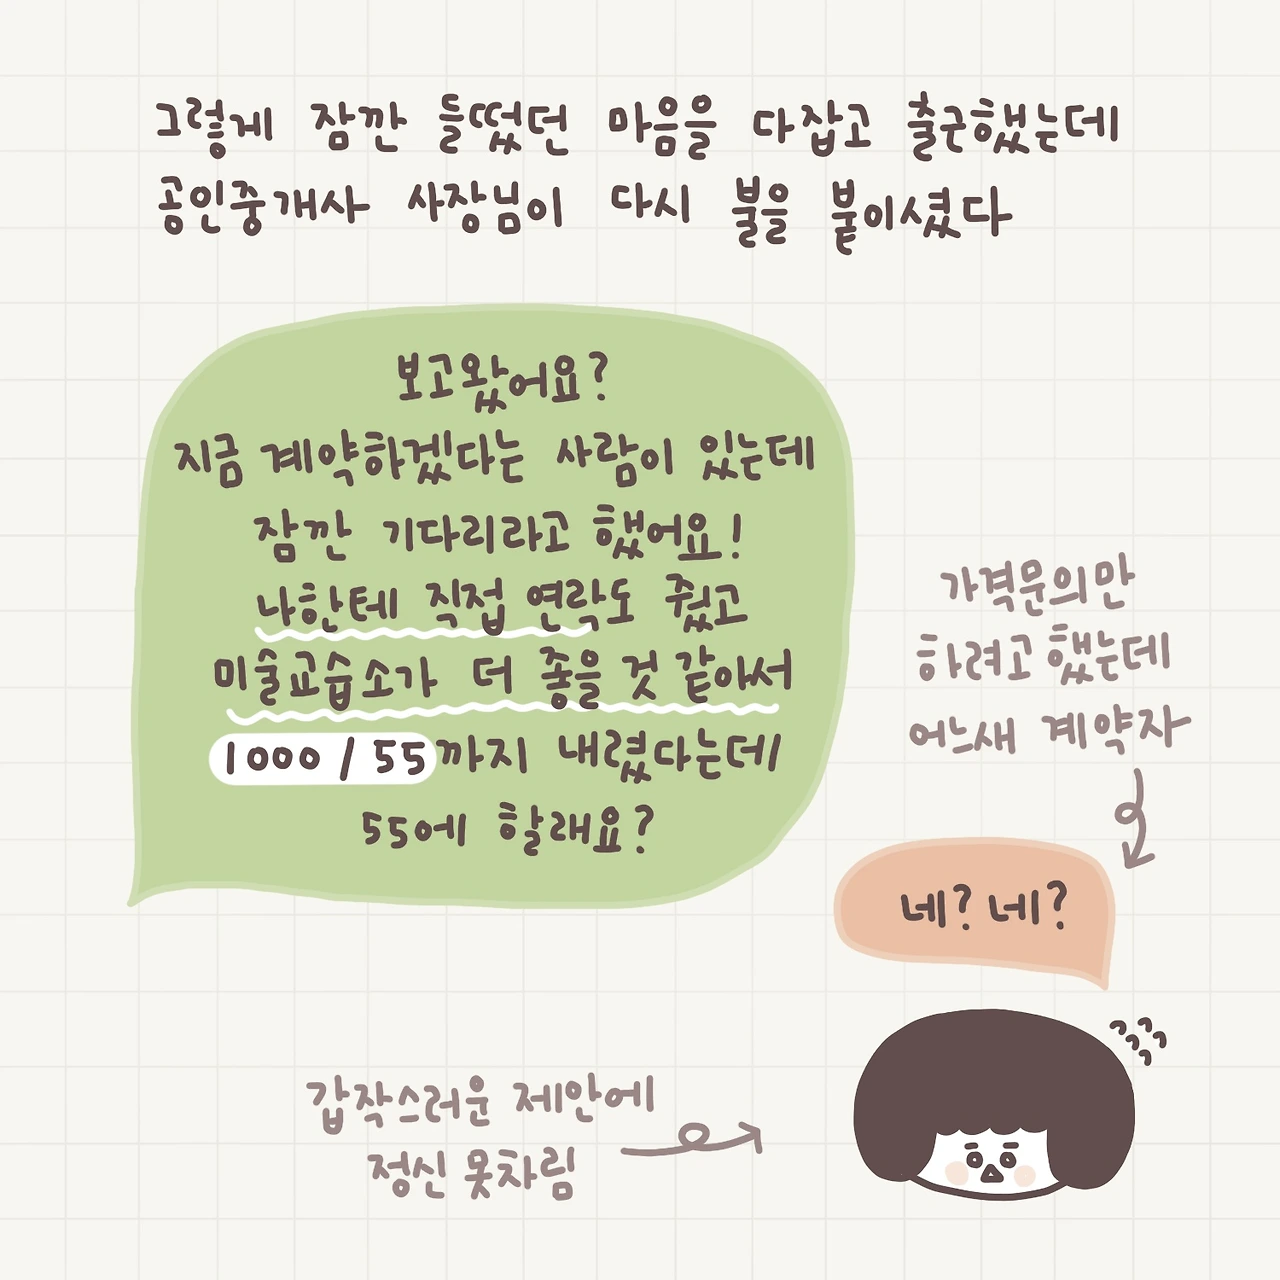 그렇게 잠깐 들떴던 마음을 다잡고 출근했는데
공인중개사 사장님이 다시 불을 붙이셨다
보고왔어요?
지금 계약하겠다는 사람이 있는데
잠깐 기다리라고 했어요!
나한테 직접 연락도 줬고
미술교습소가 더 좋을 것 같아서
1000 / 55까지 내렸다는데
55에 할래요?
가격문의만
하려고 했는데
어느새 계약자
네? 네?
갑작스러운 제안에
정신 못차림